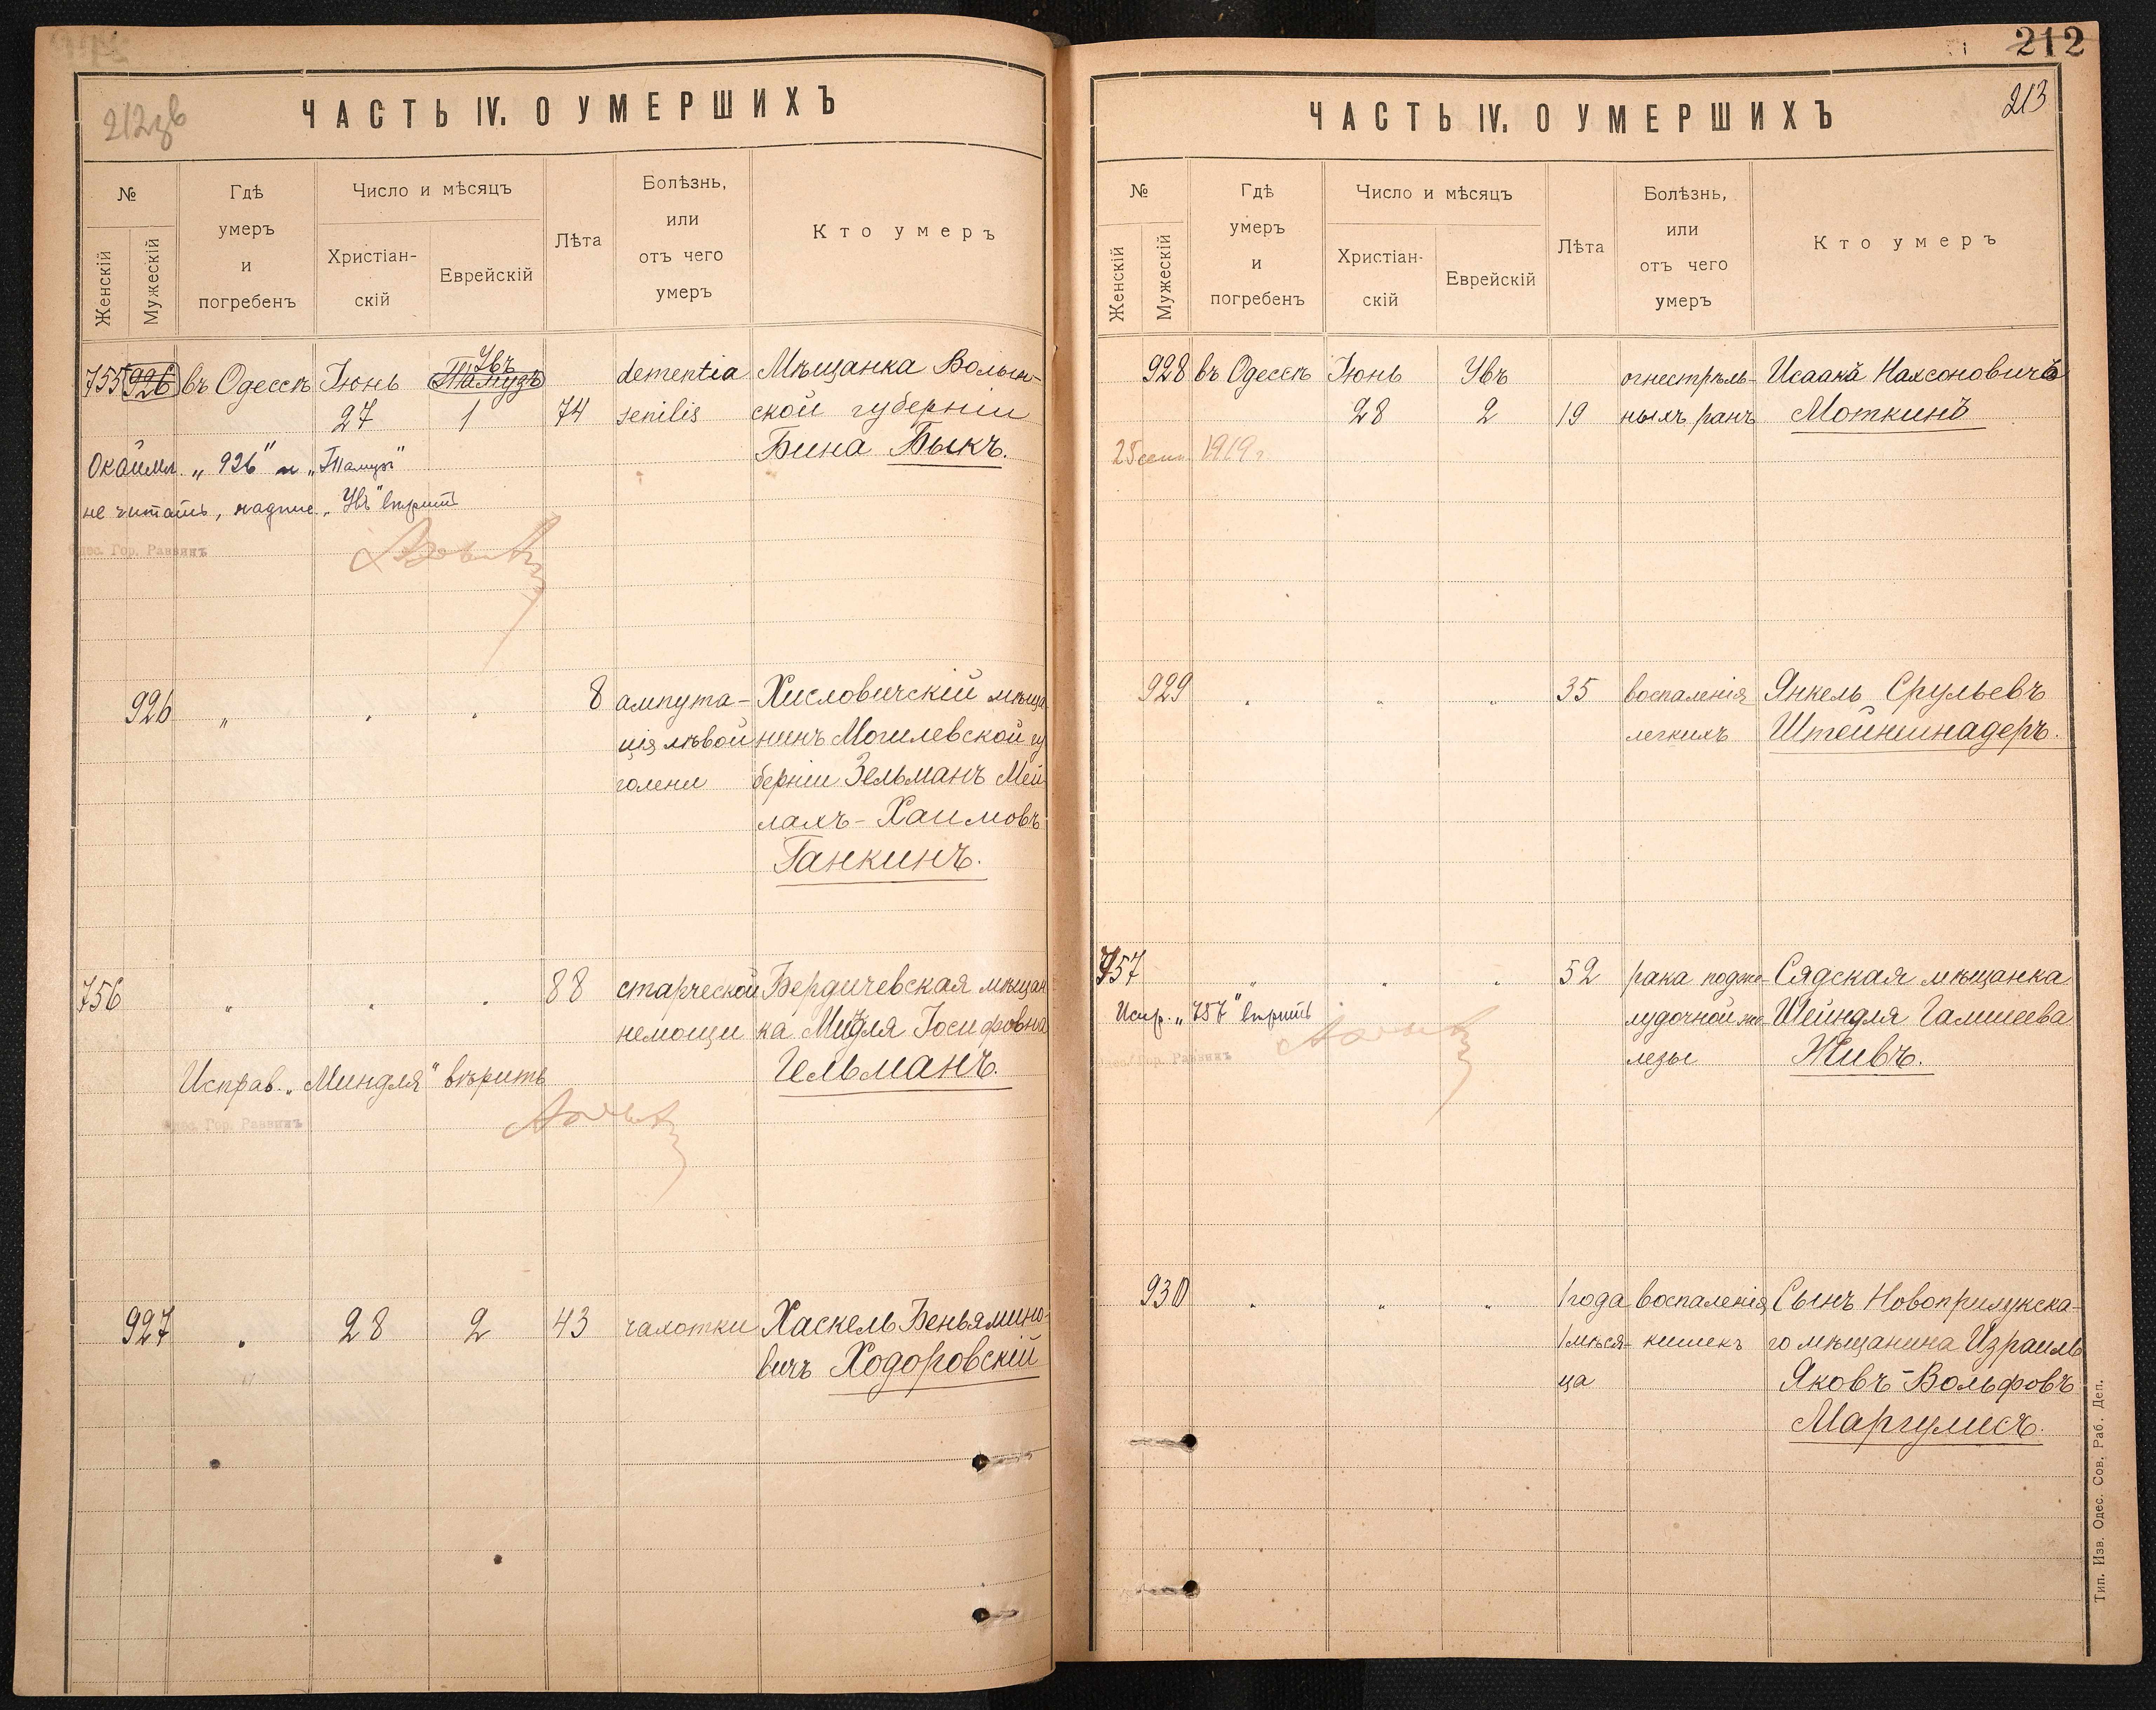 212зв
ЧАСТЬ IV. О УМЕРШИХЪ
№
Женскій
Мужескій
Гдѣ
умеръ
и
погребенъ
Число и мѣсяцъ
Христіан-
скій
Еврейскій
Лѣта
Болѣзнь,
или
отъ чего
умеръ
Кто умеръ
755 926 въ Одессѣ Іюнь Тамузъ Увъ dementia Мѣщанка Волын-
27 1 74 senilis ской губерніи
Бина Быкъ.
Окаймл. „926" и „Тамузъ"
не читать, надпис. „Увъ" вѣрить
Одес. Гор. Раввинъ
926 „ „ „ 8 ампута- Хисловичскій мѣща
ція лѣвой нинъ Могилевской гу
голени берніи Зельманъ Мей
лахъ-Хаимовъ
Ганкинъ.
756 „ „ „ 88 старческой Бердичевская мѣщан
немощи ка Миндля Іосифовна
Гельманъ.
Исправ. „Миндля" вѣрить
Одес. Гор. Раввинъ
927 „ 28 2 43 чахотки Хаскель Беньямино-
вичъ Ходоровскій
212
213
ЧАСТЬ IV. О УМЕРШИХЪ
№
Женскій
Мужескій
Гдѣ
умеръ
и
погребенъ
Число и мѣсяцъ
Христіан-
скій
Еврейскій
Лѣта
Болѣзнь,
или
отъ чего
умеръ
Кто умеръ
928 въ Одессѣ Іюнь Увъ огнестрѣль- Исаакъ Нахсоновичъ
28 2 19 ныхъ ранъ Моткинъ
25 сент. 1919 г.
929 „ „ „ 35 воспаленія Янкель Срульевъ
легкихъ Штейншнадеръ.
757 „ „ „ 52 рака подже- Сядская мѣщанка
Испр. „757" вѣрить лудочной же- Шейндля Гамшеева
лезы Живъ.
Одес. Гор. Раввинъ
930 „ „ „ 1 года воспаленія Сынъ Новоприлукска-
1 мѣся- кишекъ го мѣщанина Израиль
ца Яковъ-Вольфовъ
Маргулисъ.
Тип. Изв. Одес. Сов. Раб. Деп.